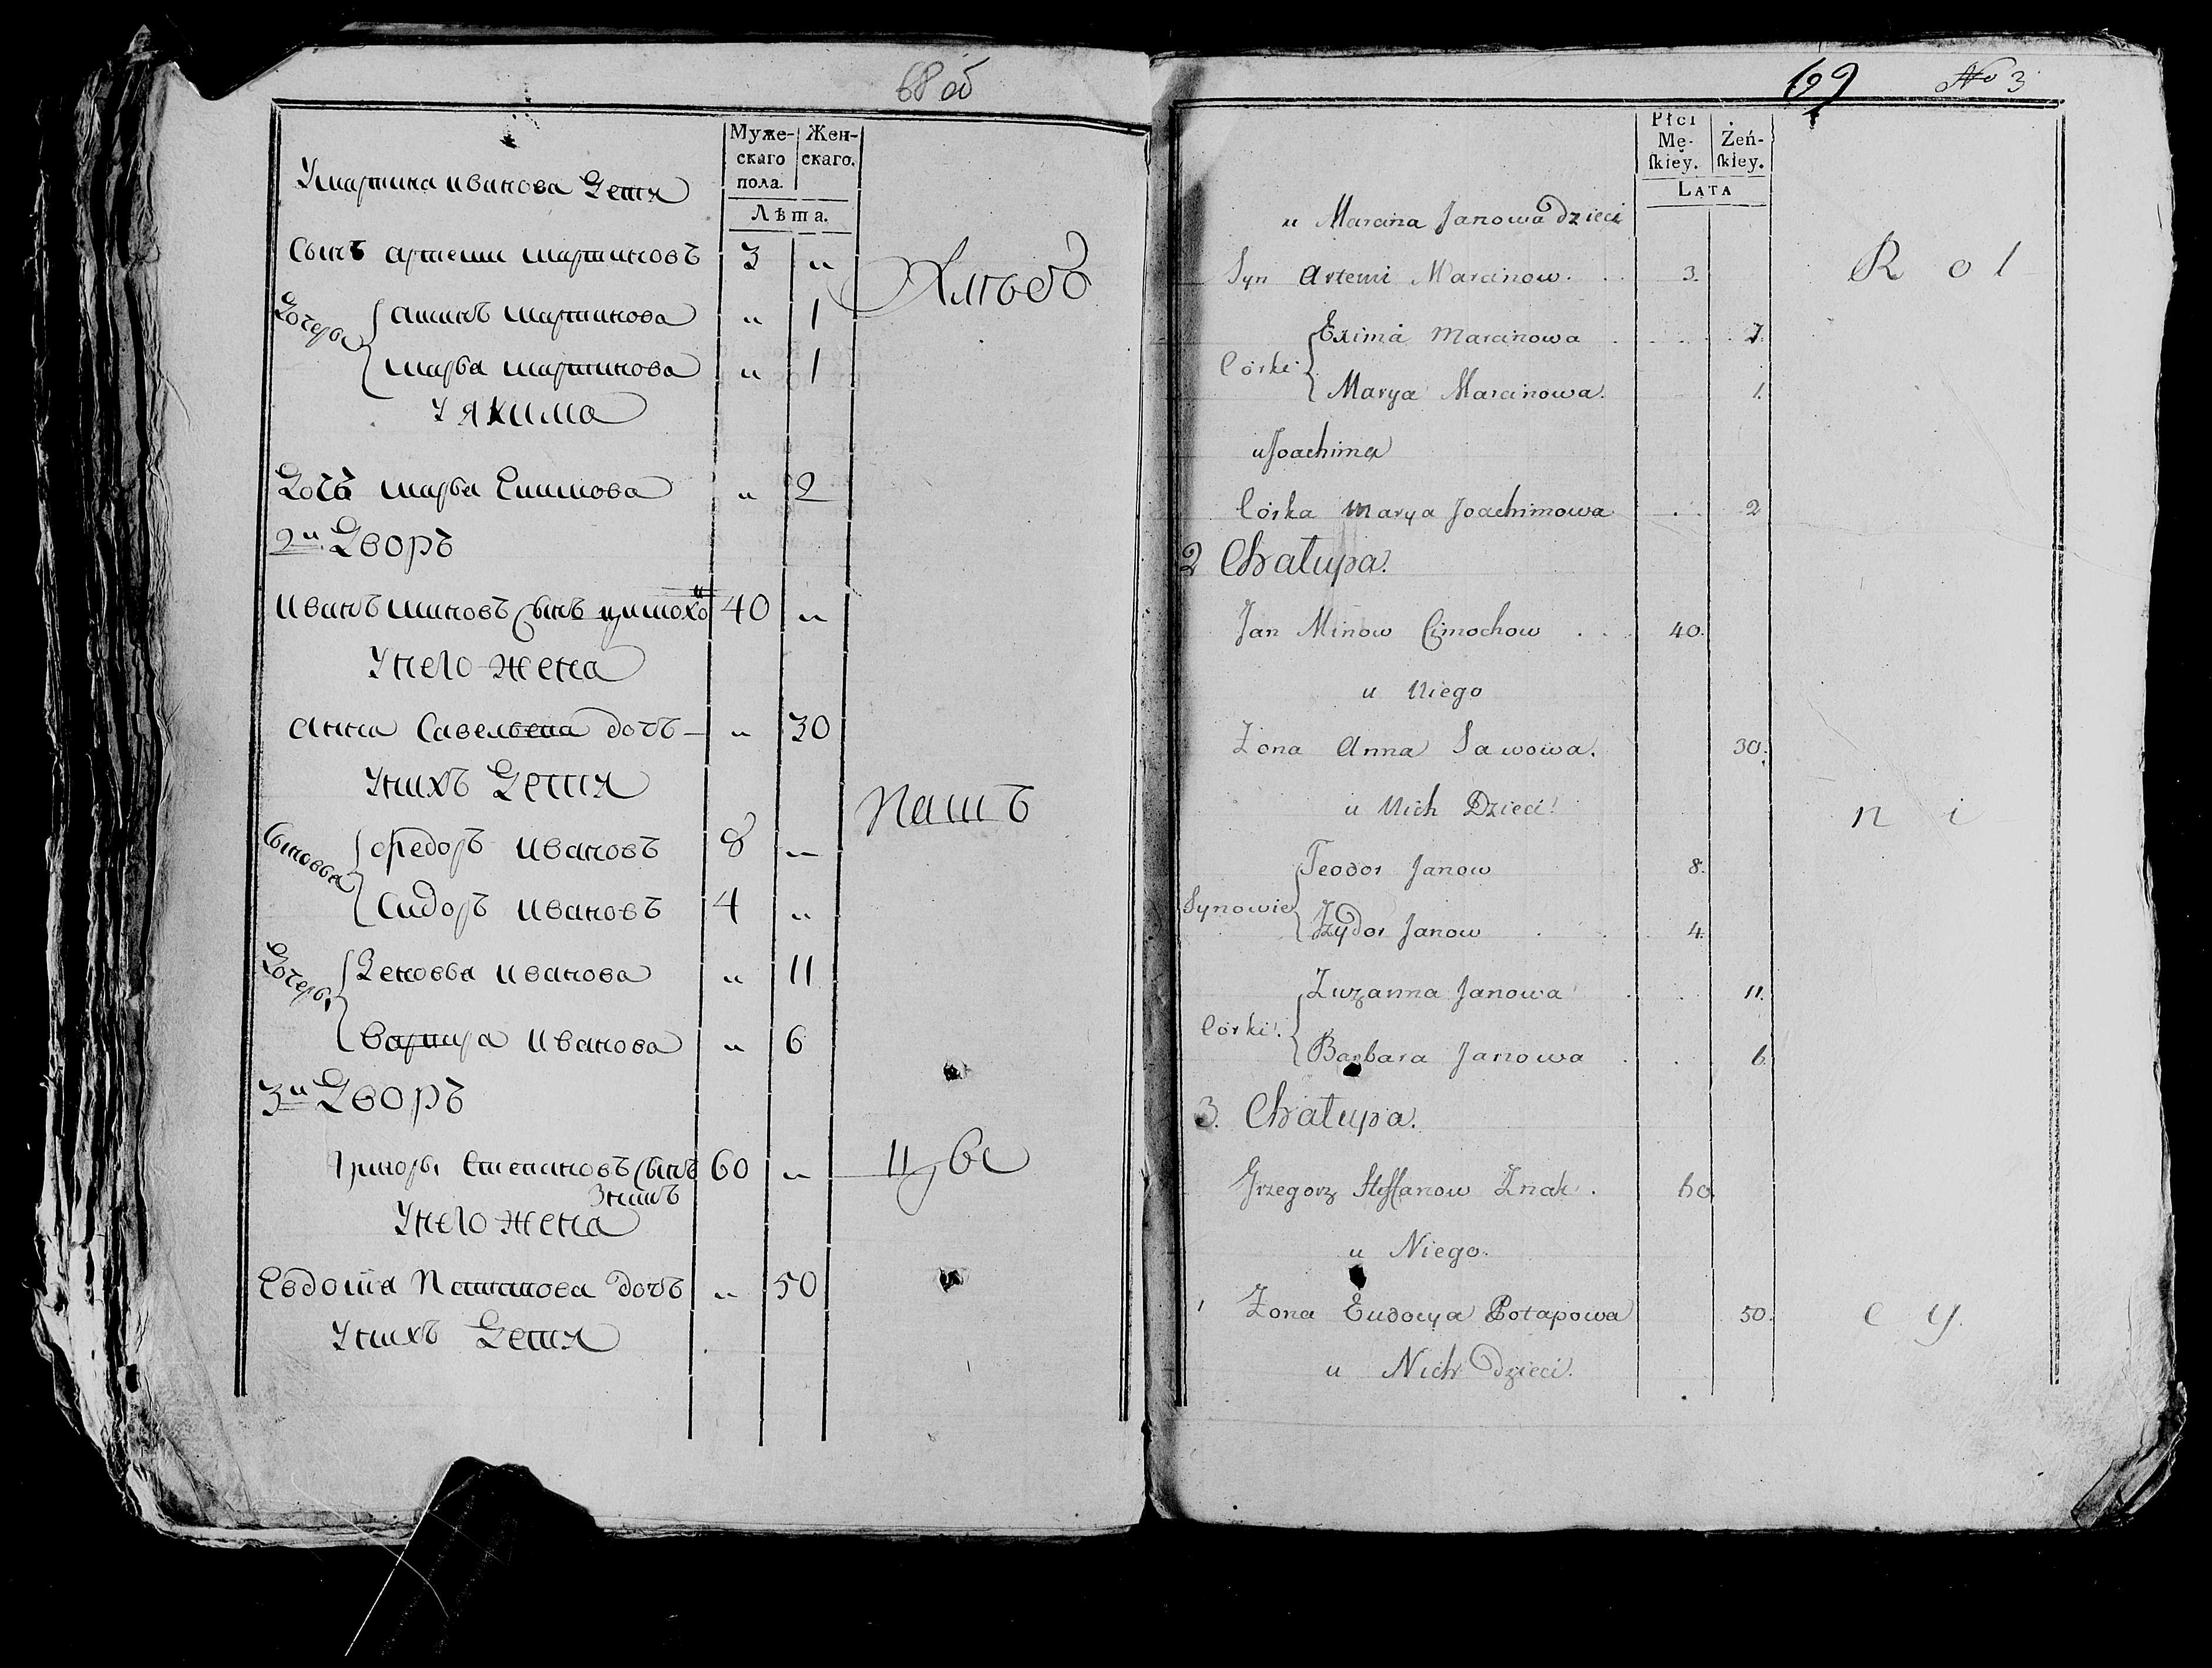 68 об
Муже-
скаго
пола.
Жен-
скаго.
Лѣта.
Умартина иванова Детя
Сынъ артеми мартиновъ 3 „
Дочерьи
мартинова „ 1
марья мартинова „ 1
Хлѣбо
У якима
Дочь марья Екимова „ 2
2й Дворъ
иванъ миновъ сынъ цимохо 40 „
Унего жена
анна Савельева дочь „ 30
Унихъ Детя
Сыновья
федоръ ивановъ 8 „
Сидоръ ивановъ 4 „
пашъ
Дочерьи
Зеновья иванова „ 11
иванова „ 6
3й Дворъ
Григоры Степановъ сынъ 60 „
Знакъ
цы
Унего жена
Евдотя Патапова дочь „ 50
Унихъ Детя
69 No 3
Płci
Mę-
ſkiey.
Żeń-
ſkiey.
LATA
u Marcina Janowa dzieci
Syn Artemi Marcinow. 3.
R o l
Córki
Exima Marcinowa 1.
Marya Marcinowa. 1.
u Joachima
Córka Marya Joachimowa 2
2 Chałupa.
Jan Minow Cimochow 40.
u Niego
Żona Anna Sawowa. 30.
u Nich Dzieci
n i
Synowie
Teodor Janow 8.
Izydor Janow 4.
Córki.
Zuzanna Janowa 11.
Barbara Janowa 6
3. Chałupa.
Grzegorz Steffanow Znak. 60
u Niego.
Żona Eudocya Potapowa 50.
c y.
u Nich dzieci.